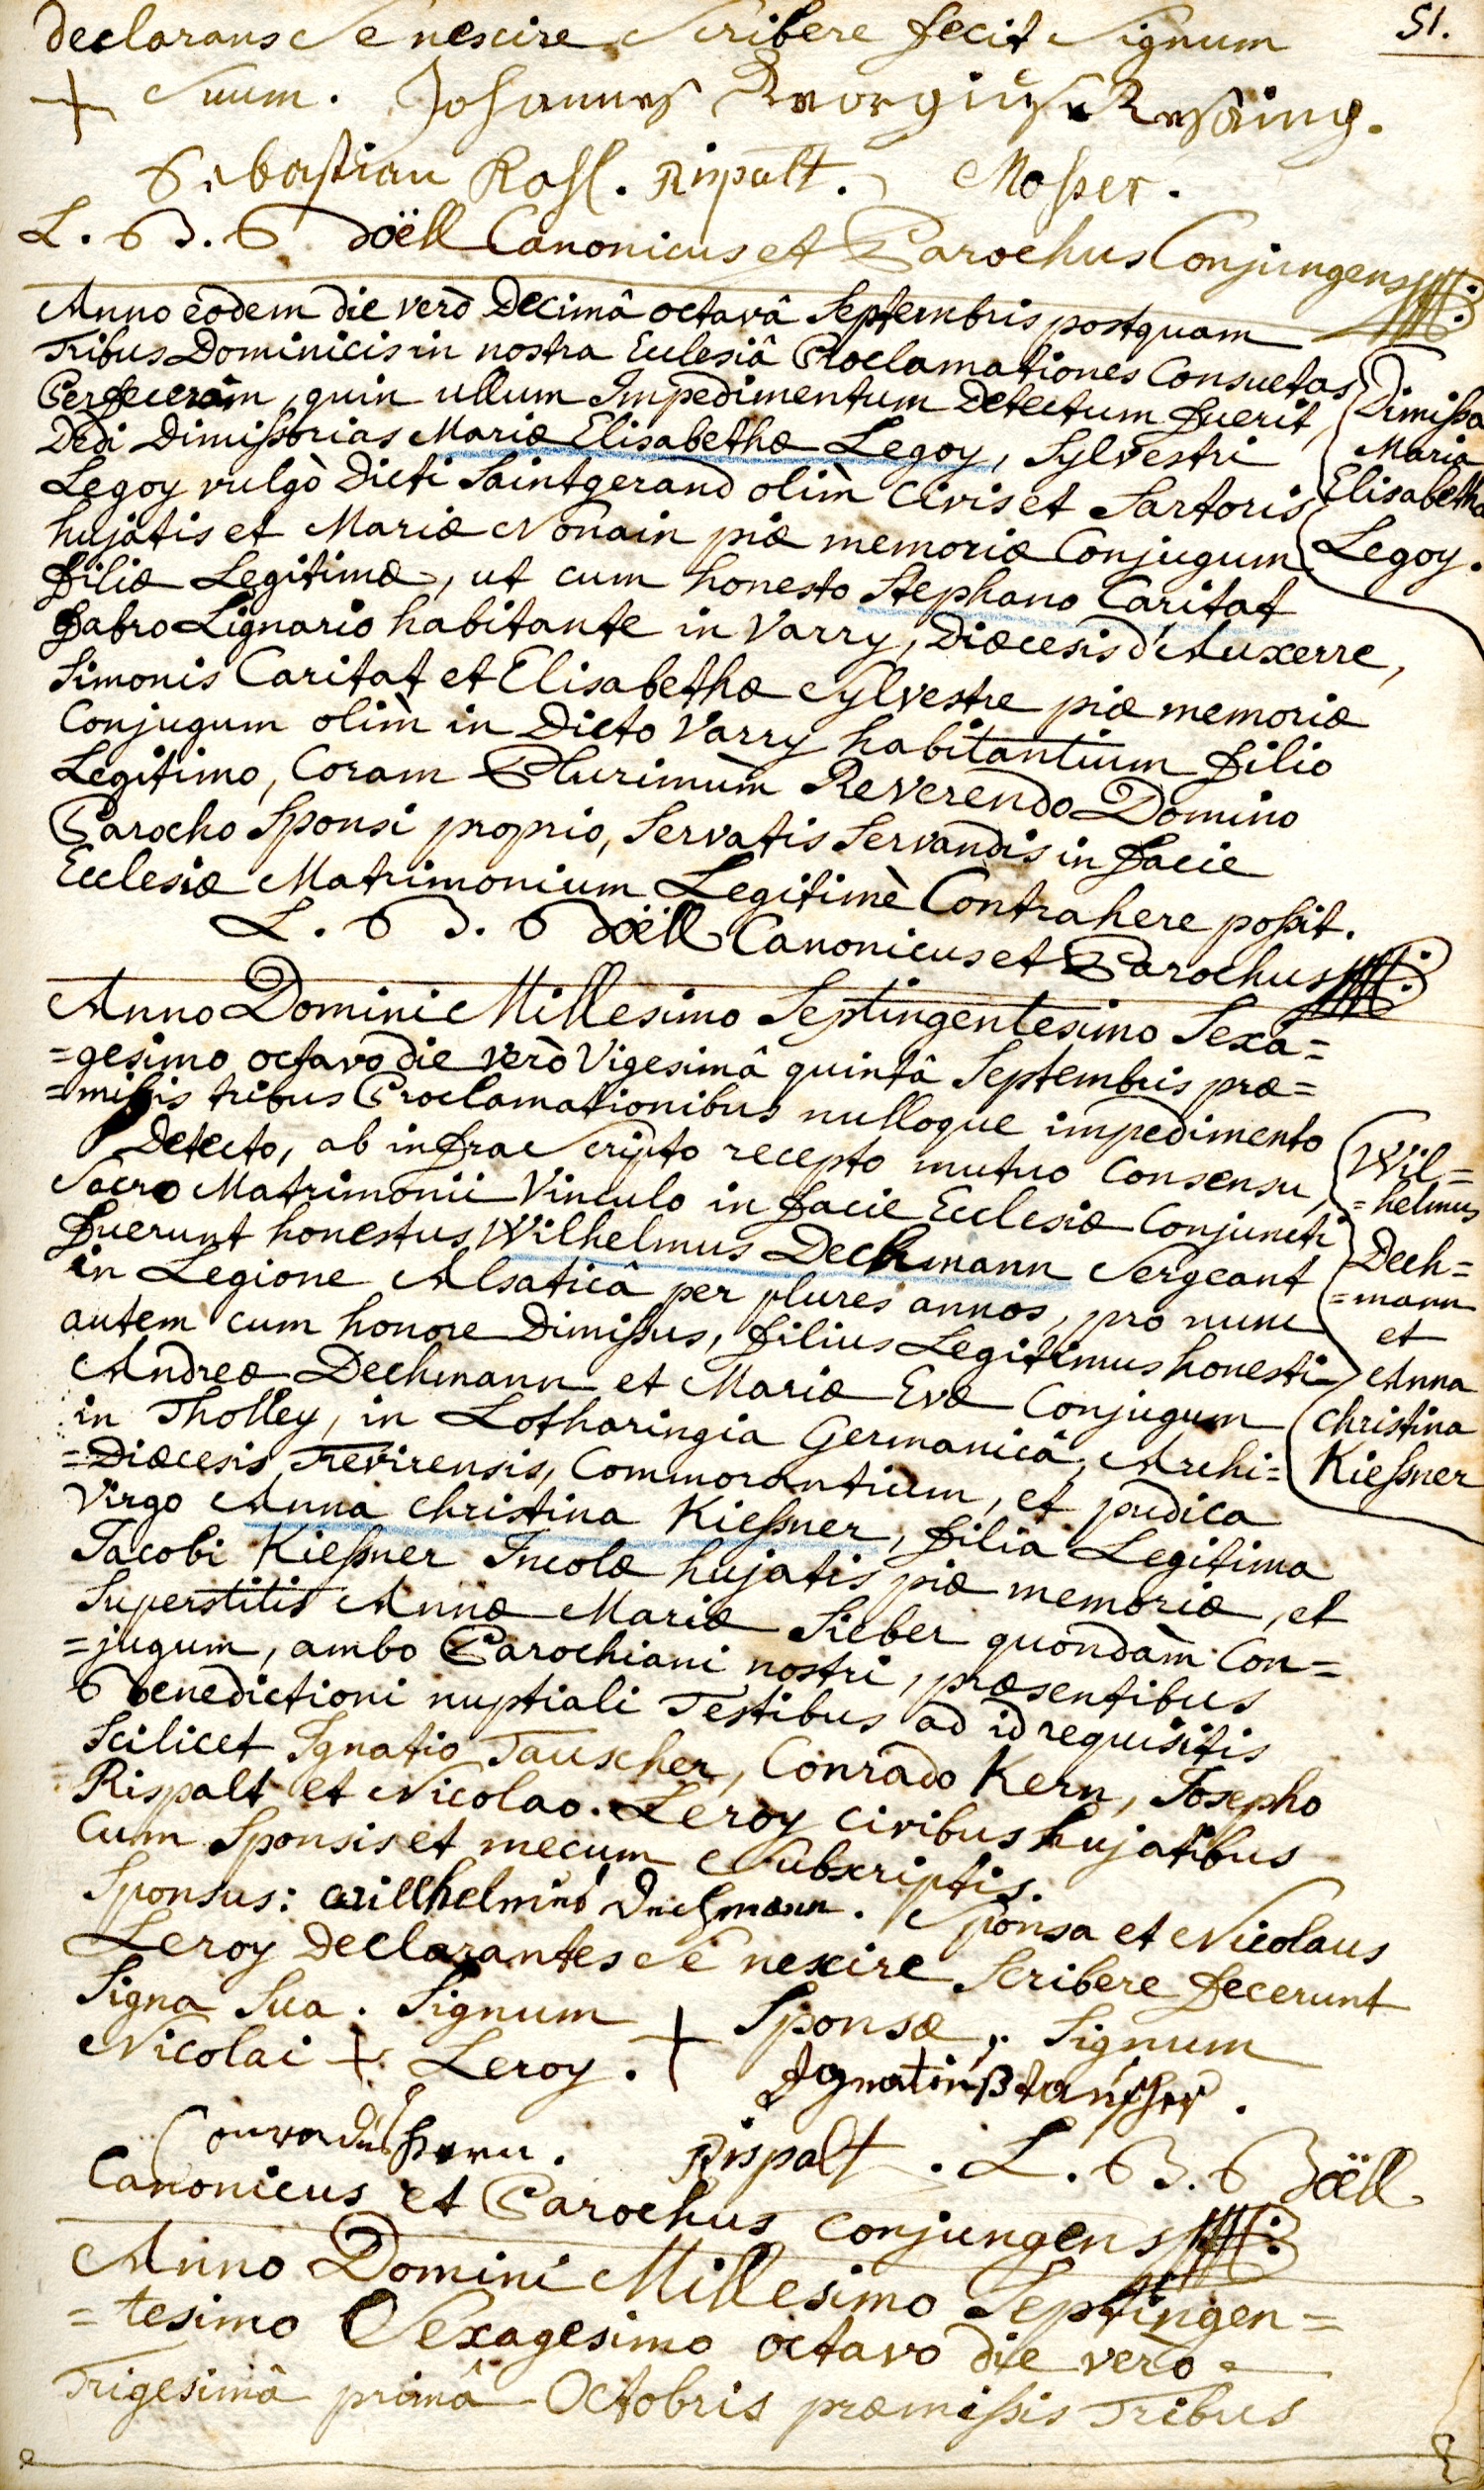 51.
declarans Se nescire Scribere fecit Signum
+ Suum. Johannes Georgius
Sebastian Rohl. Rispalt. Mosser.
L. B. B Doëll Canonicus et Parochus Conjungens
Anno eodem die verò Decimâ octavâ Septembris postquam
Tribus Dominicis in nostra Ecclesiâ Proclamationes Consuetas
Perfeceram, quin ullum Impedimentum Detectum fuerit,
Dedi Dimissorias Mariæ Elisabethæ Legoy, Sylvestri
Legoy vulgò Dicti Saintgerand olim Civis et Sartoris
hujatis et Mariæ Nonain piæ memoriæ Conjugum
filiæ Legitimæ, ut cum honesto Stephano Caritat
fabro Lignario habitante in Varry, Diœcesis d'Auxerre,
Simonis Caritat et Elisabethæ Sylvestre piæ memoriæ
Conjugum olim in Dicto Varry habitantium filio
Legitimo, Coram Plurimùm Reverendo Domino
Parocho Sponsi proprio, Servatis Servandis in facie
Ecclesiæ Matrimonium Legitimè Contrahere possit.
L. B. B Doëll Canonicus et Parochus
Dimissa
Maria
Elisabetha
Legoy.
Anno Domini Millesimo Septingentesimo Sexa=
=gesimo octavo die verò Vigesimâ quintâ Septembris præ=
=missis tribus Proclamationibus nulloque impedimento
Detecto, ab infrascripto recepto mutuo Consensu,
Sacro Matrimonii Vinculo in facie Ecclesiæ Conjuncti
fuerunt honestus Wilhelmus Dechmann Sergeant
in Legione Alsaticâ per plures annos, pro nunc
autem cum honore Dimissus, filius Legitimus honesti
Andreæ Dechmann et Mariæ Evæ Conjugum
in Tholley, in Lotharingia Germanicâ, Archi=
=Diœcesis Trevirensis, Commorantium, et pudica
Virgo Anna Christina Kiessner, filia Legitima
Jacobi Kiessner Incolæ hujatis piæ memoriæ, et
Superstitis Annæ Mariæ Sieber quondàm Con=
=jugum, ambo Parochiani nostri, præsentibus
Benedictioni nuptiali Testibus ad id requisitis
Scilicet Ignatio Tauscher, Conrado Kern, Josepho
Rispalt et Nicolao Leroy civibus hujatibus
Cum Sponsis et mecum Subscriptis.
Sponsus: willhelmus Dechmann. Sponsa et Nicolaus
Leroy Declarantes Se nescire Scribere fecerunt
Signa Sua. Signum + Sponsæ, Signum
Nicolai + Leroy. Ignatius tauscher.
Conradus Kern. Rispalt. L. B. B Doëll
Canonicus et Parochus Conjungens
Wil=
=helmus
Dech=
=mann
et
Anna
Christina
Kiessner
Anno Domini Millesimo Septingen=
=tesimo Sexagesimo octavo die verò
Trigesimâ primâ Octobris præmissis Tribus